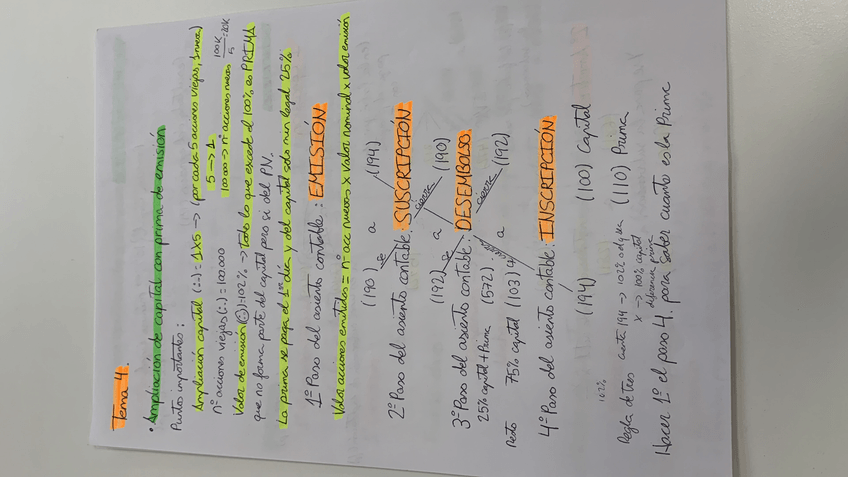 Tema 4.
• Ampliación de capital con prima de emisión
Puntos importantes:
Ampliación capital (:-) = 1x5 → (por cada 5 acciones viejas, 1 nueva)
5 → 1
nº acciones viejas (:-) = 100.000
100.000 → nº acciones nuevas
100K = 20K
5
Valor de emisión (:-) = 102% → todo lo que excede el 100% es PRIMA
que no forma parte del capital pero si del PN.
La prima se paga el 1er día y del capital solo min legal 25%
1º Paso del asiento contable: EMISIÓN:
Valor acciones emitidas = nº acc nuevas x valor nominal x valor emisión
(190) a (194)
2º Paso del asiento contable: SUSCRIPCIÓN:
(192) a (190) cierre
3º Paso del asiento contable: DESEMBOLSO:
25% capital + Prima (572) a (192) cierre
Resto 75% capital (103)
4º Paso del asiento contable: INSCRIPCIÓN:
(194) (100) Capital
(110) Prima
Regla de tres cuenta 194 → 102%
x → 100% capital
diferencia prima
Hacer 1º el paso 4. para saber cuanto es la Prima